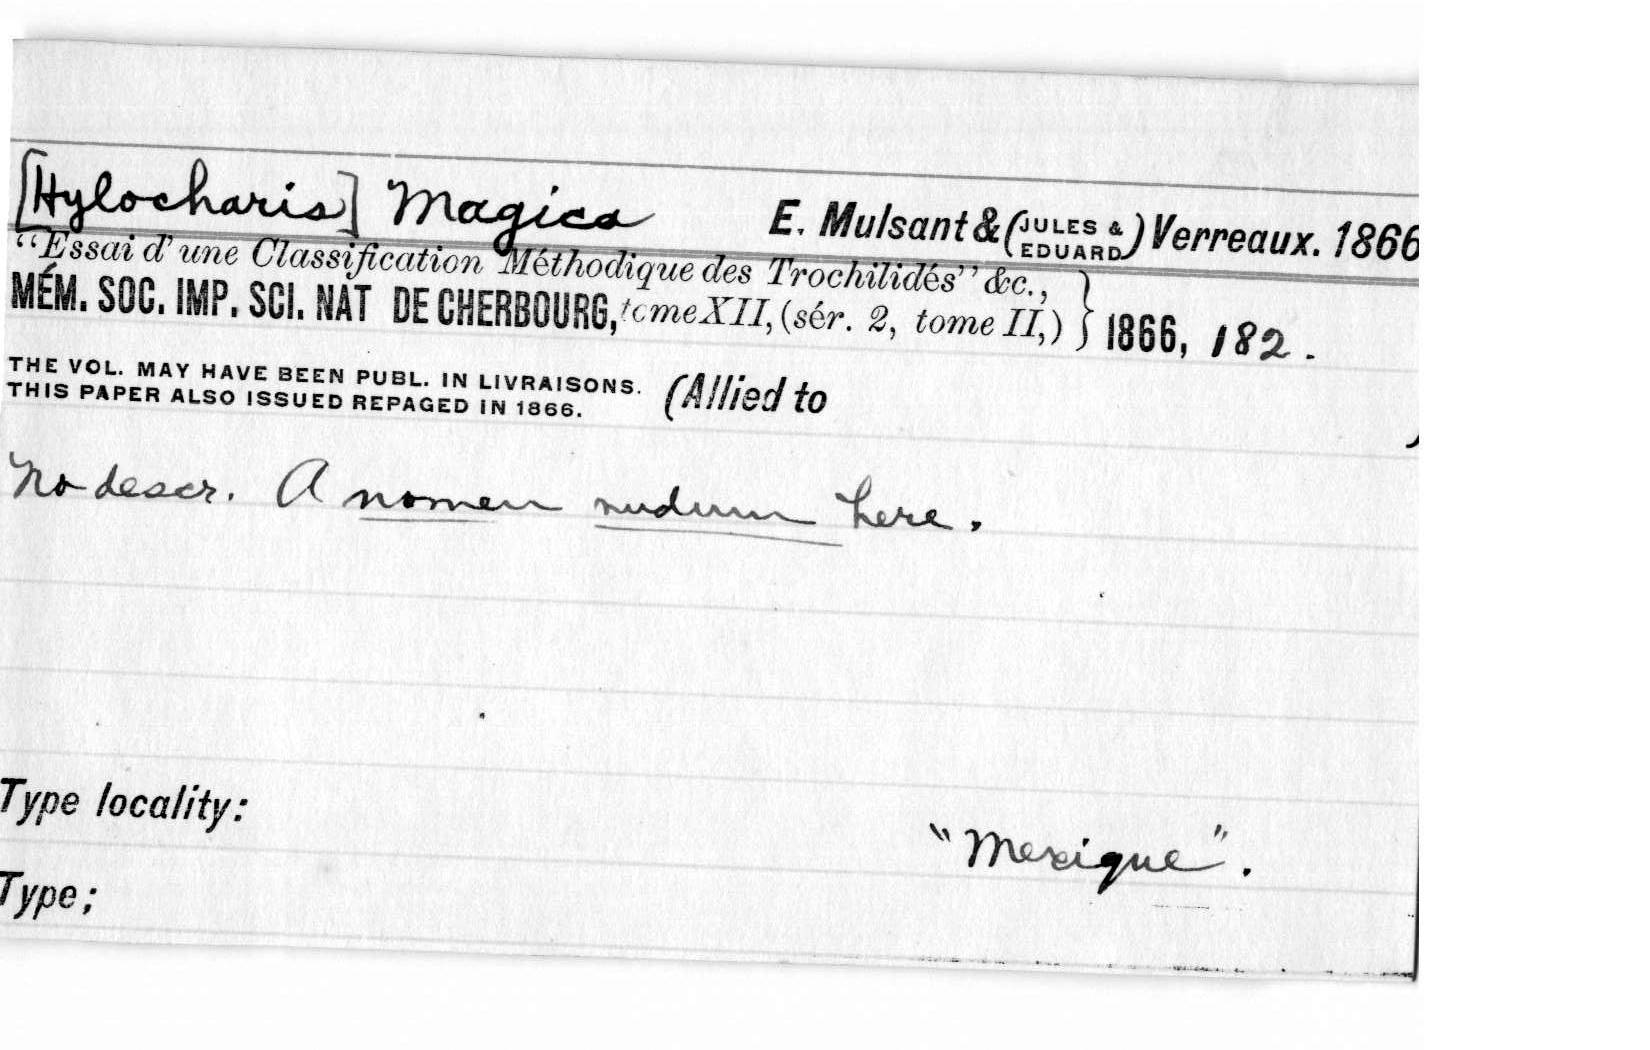 [Hylocharis] Magica E. Mulsant & (JULES & EDUARD) Verreaux. 1866
“Essai d' une Classification Méthodique des Trochilidés” &c.,
MÉM. SOC. IMP. SCI. NAT DE CHERBOURG, tome XII, (sér. 2, tome II,) } 1866, 182.
THE VOL. MAY HAVE BEEN PUBL. IN LIVRAISONS.
THIS PAPER ALSO ISSUED REPAGED IN 1866. (Allied to )
No descr. A nomen nudum here.
Type locality:
"Mexique".
Type;